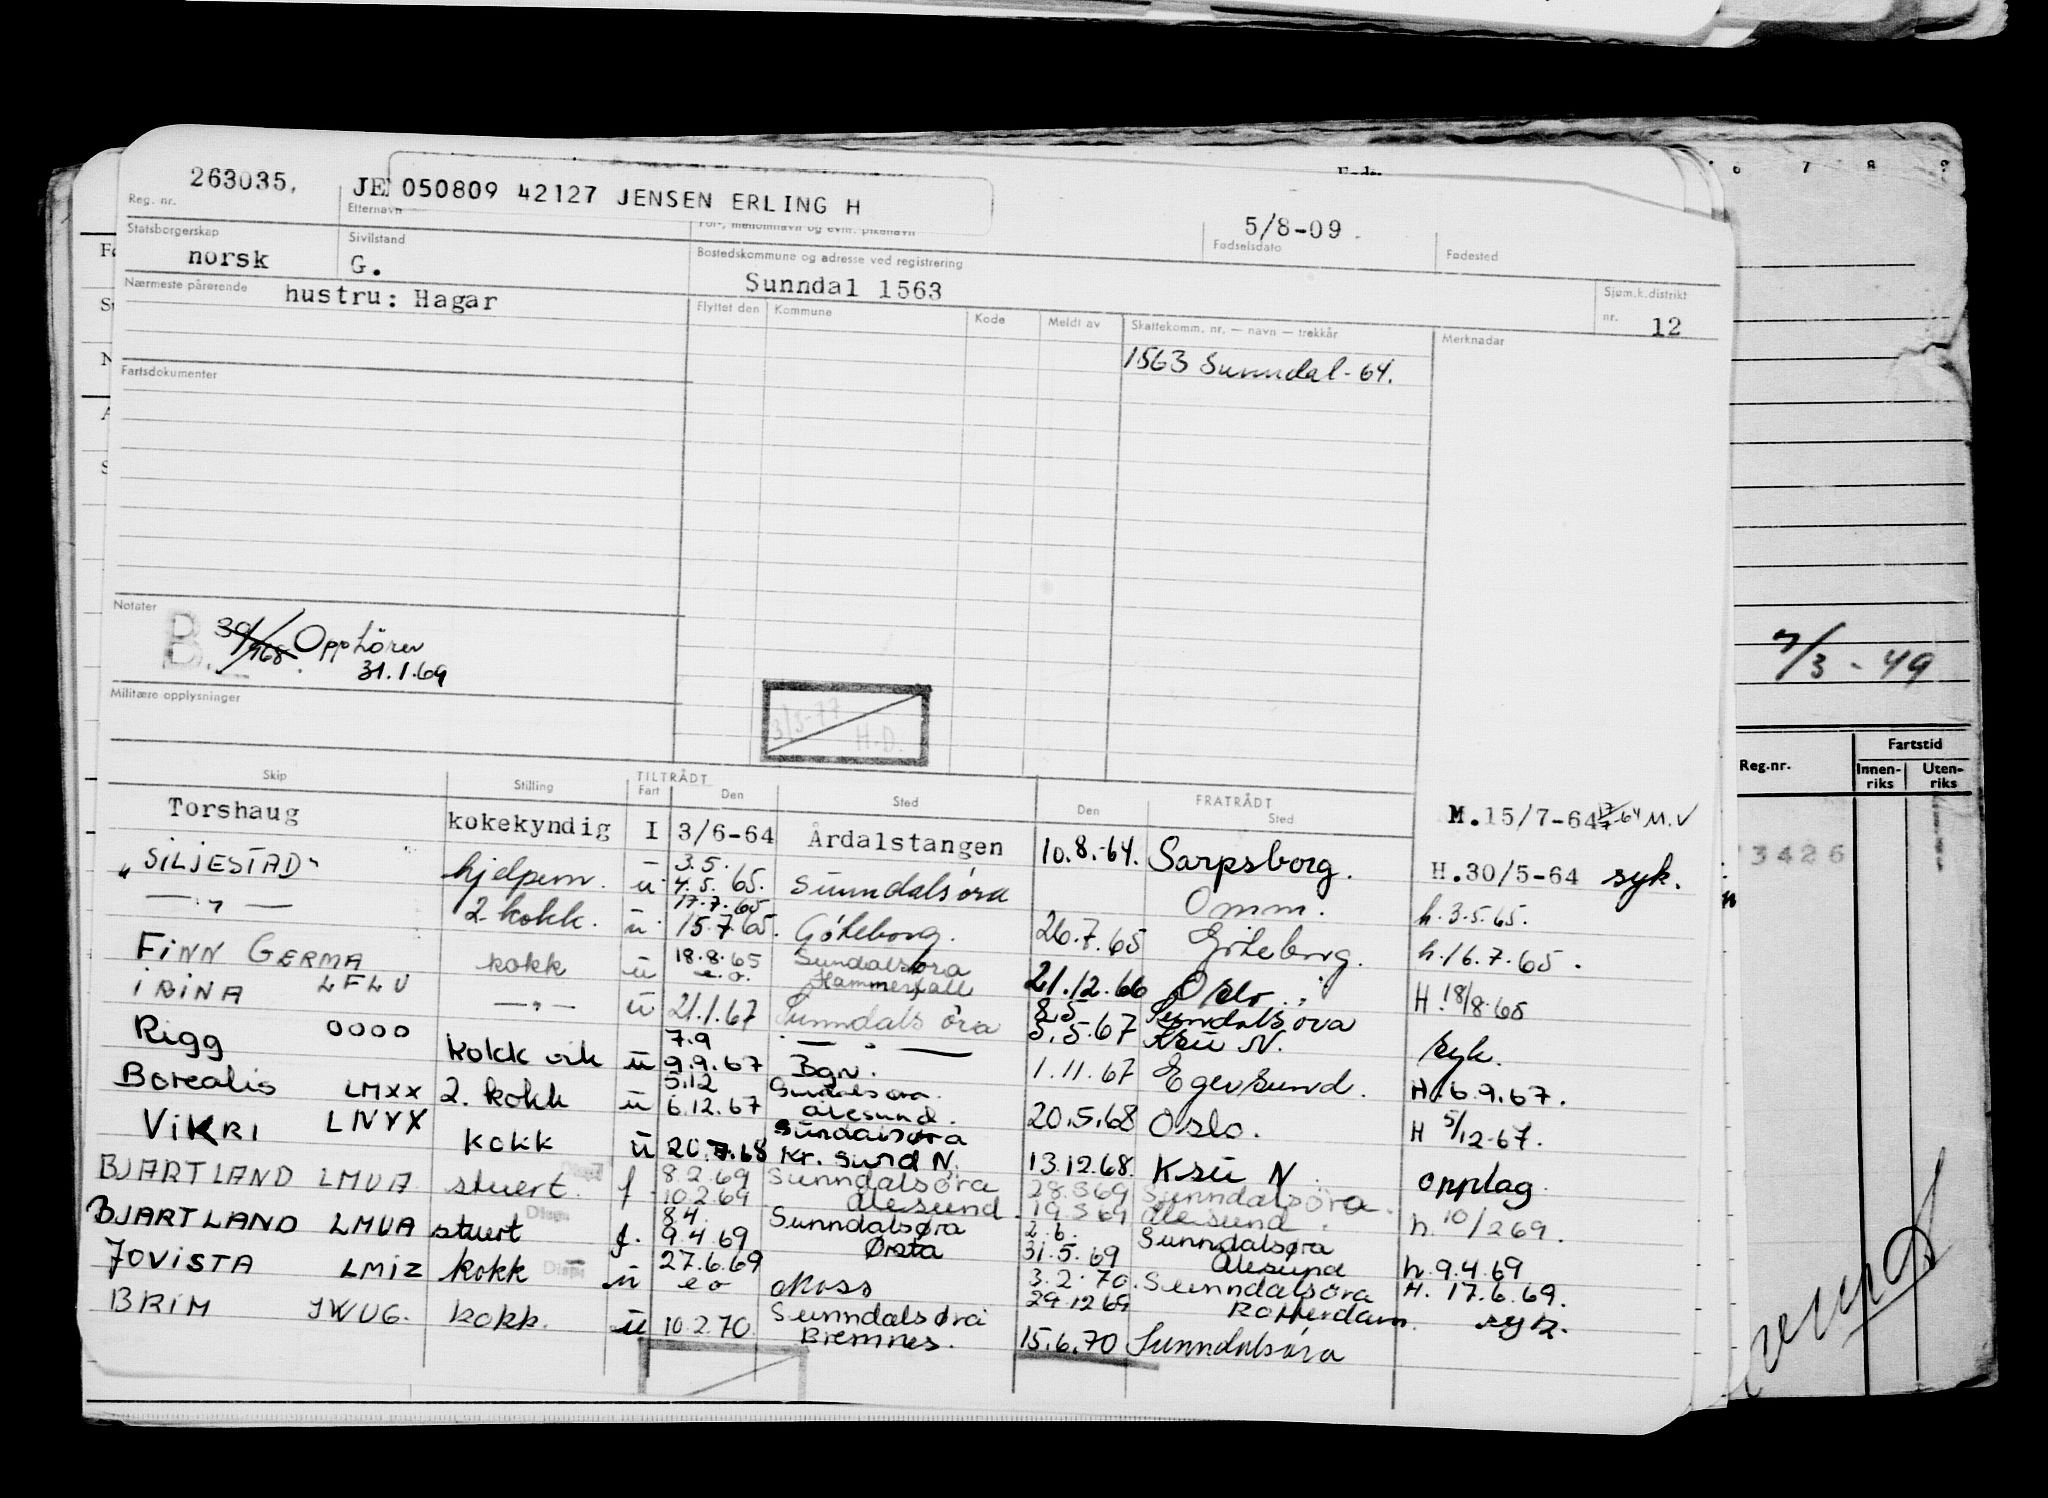 6 7 8 9
263035. JE 050809 42127 JENSEN ERLING H 5/8-09
Reg. nr. Etternavn For-, mellomnavn og evnt. pikenavn Fødselsdato Fødested
Statsborgerskap Sivilstand Bostedskommune og adresse ved registrering
norsk G. Sunndal 1563
Nærmeste pårørende hustru: Hagar
Sjøm.k.distrikt nr. 12
Flyttet den Kommune Kode Meldt av Skattekomm. nr. — navn — trekkår Merknadar
1563 Sunndal-64.
Fartsdokumenter
Notater
Opphörer
31.1.69
Militære opplysninger
3/5-77
H.D.
7/3-49
Reg.nr. Fartstid
Innen-riks Uten-riks
3426
Skip Stilling TILTRÅDT Fart Den Sted FRATRÅDT Den Sted
Torshaug kokekyndig I 3/6-64 Årdalstangen 10.8.-64. Sarpsborg. M.15/7-64
"SILJESTAD" hjelpem. u 3.5. 4.5.65. Sunndalsöra Omm. H.30/5-64 syk.
— " — 2. kokk. u 17.7.65 15.7.65. Göteborg. 26.7.65 Göteborg. h.3.5.65.
h.16.7.65.
FINN GERMA LFLV kokk u 18.8.65 e.o. Sundalsöra Hammerfall 21.12.66 Oslo H 18/8.65
IRINA — " — u 21.1.67 Sunndalsöra 8.5 5.5.67 Sunndalsöra Ksu N. syk.
Rigg OOOO kokk vik u 7.9 9.9.67 — " — Bgn. 1.11.67 Egersund. H.6.9.67.
Borealis LMXX 2. kokk u 5.12 6.12.67 Sundalsøra. Ålesund. 20.5.68 Oslo. H 5/12-67.
VIKRI LNYX kokk u 20.7.68 Sundalsøra Kr. Sund N. 13.12.68. KSU N opplag
BJARTLAND LMUA stuert. f 8.2.69 10.2.69 Sunndalsöra Ålesund. 28.3.69 19.3.69 Sunndalsöra. Ålesund. h. 10/2 69.
BJARTLAND LMUA stuert f. 8.4. 9.4.69 Sunndalsøra Ørsta 2.6. 31.5.69 Sunndalsøra Ålesund h.9.4.69
JOVISTA LMIZ kokk u 27.6.69 e o Moss 3.2.70. 29.12.69 Sunndalsöra Rotterdam. H. 17.6.69. syk.
BRIM JWUG. kokk. u 10.2.70. Sunndalsöra Bremnes. 15.6.70 Sunndalsöra